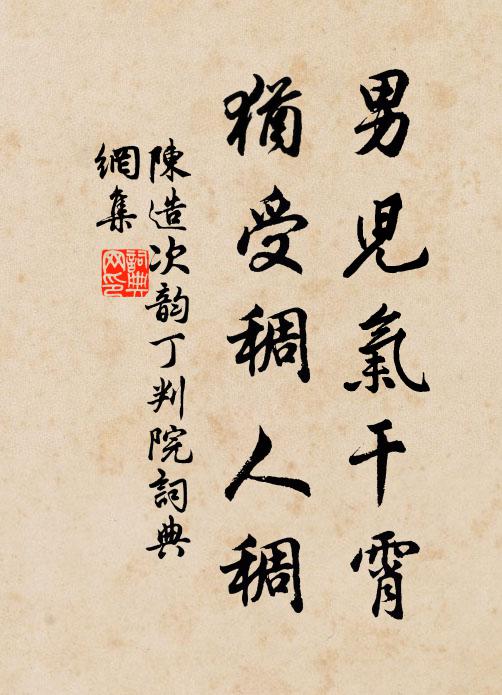 男兒氣干霄
猶受稠人稠
陳造次韵丁判院詞典
網集
詞典
网印